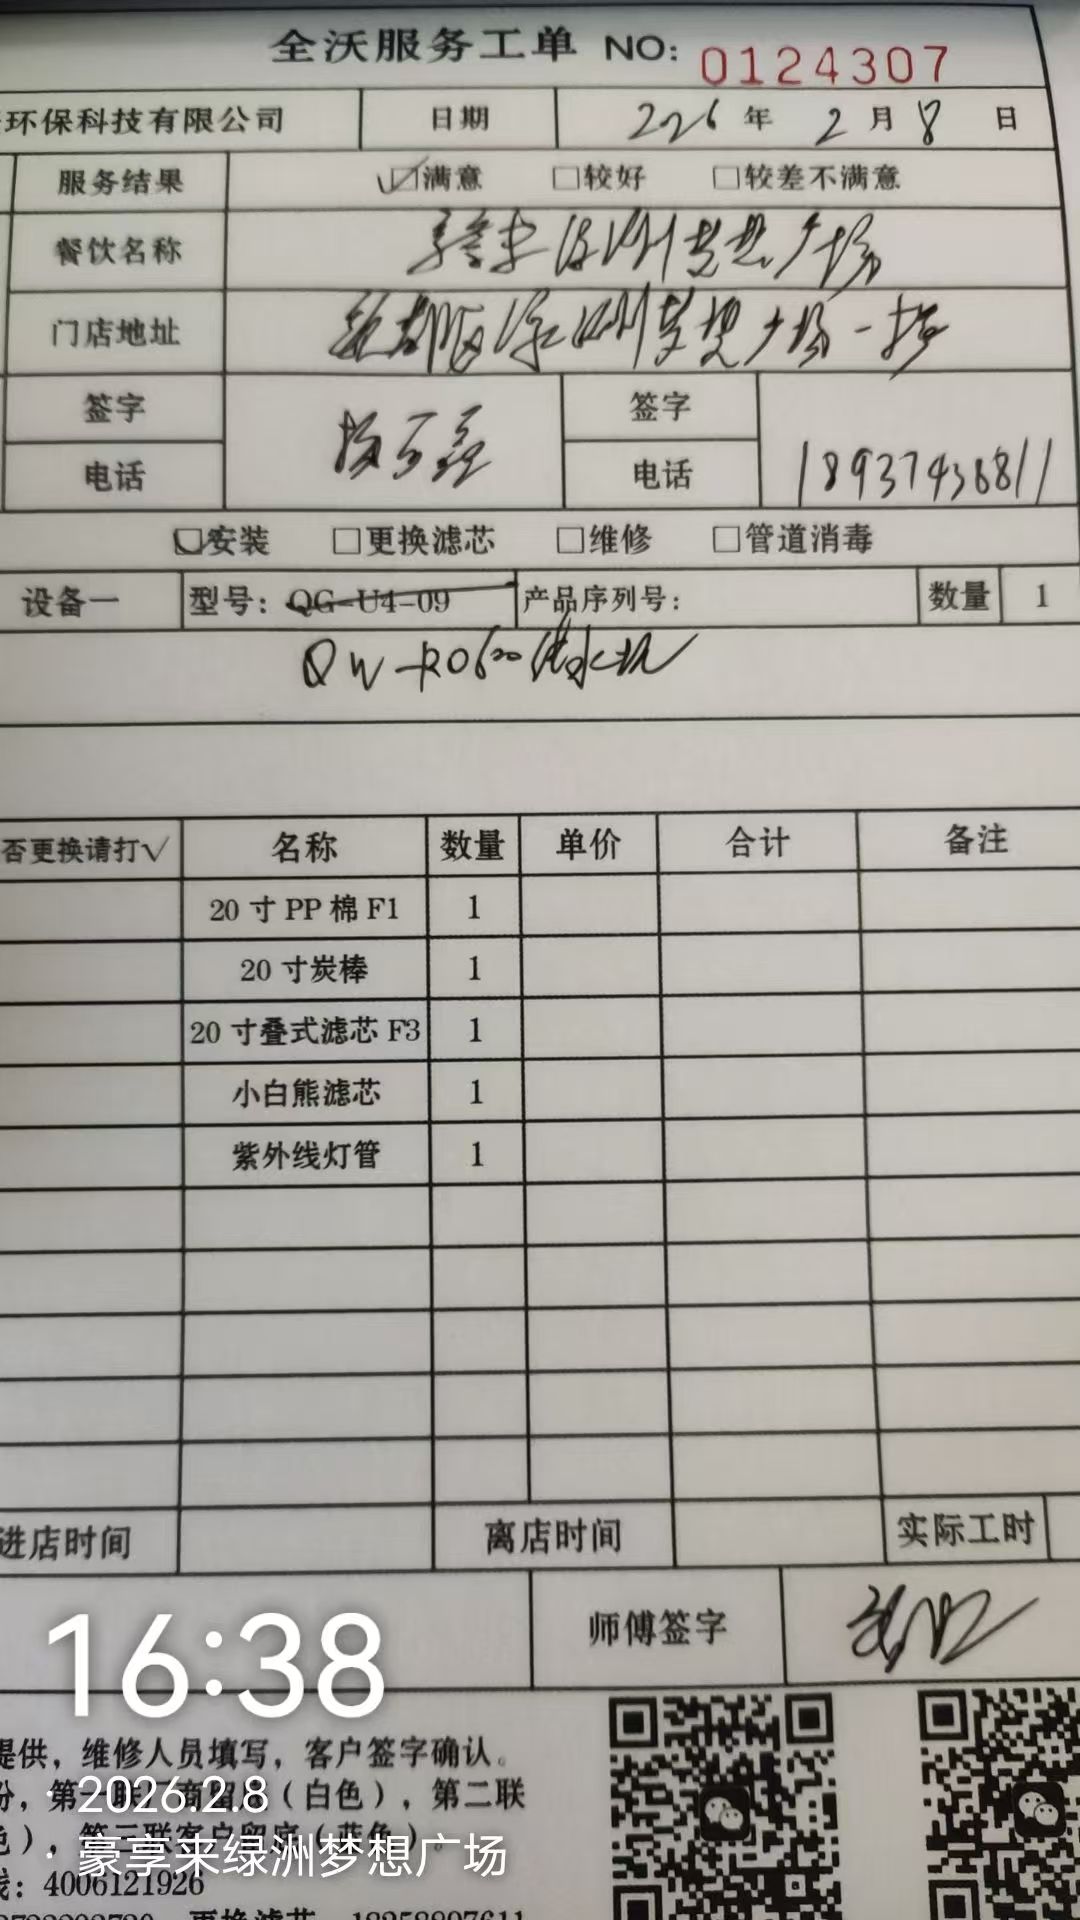 全沃服务工单 NO: 0124307
环保科技有限公司 日期 2026年 2月 8日
服务结果 ☑满意 □较好 □较差不满意
餐饮名称 豪享来绿洲梦想广场
门店地址 绿洲梦想广场一楼
签字 签字
电话 电话 18937436811
☑安装 □更换滤芯 □维修 □管道消毒
设备一 型号: QG-U4-09 产品序列号: 数量 1
QW-RO600供水机
否更换请打√ 名称 数量 单价 合计 备注
20寸PP棉F1 1
20寸炭棒 1
20寸叠式滤芯F3 1
小白熊滤芯 1
紫外线灯管 1
进店时间 离店时间 实际工时
师傅签字
16:38
提供，维修人员填写，客户签字确认。
份，第一联厂商留底（白色），第二联
· 2026.2.8
色），第三联客户留底（蓝色）。
· 豪享来绿洲梦想广场
线: 4006121926
更换滤芯 18258897611